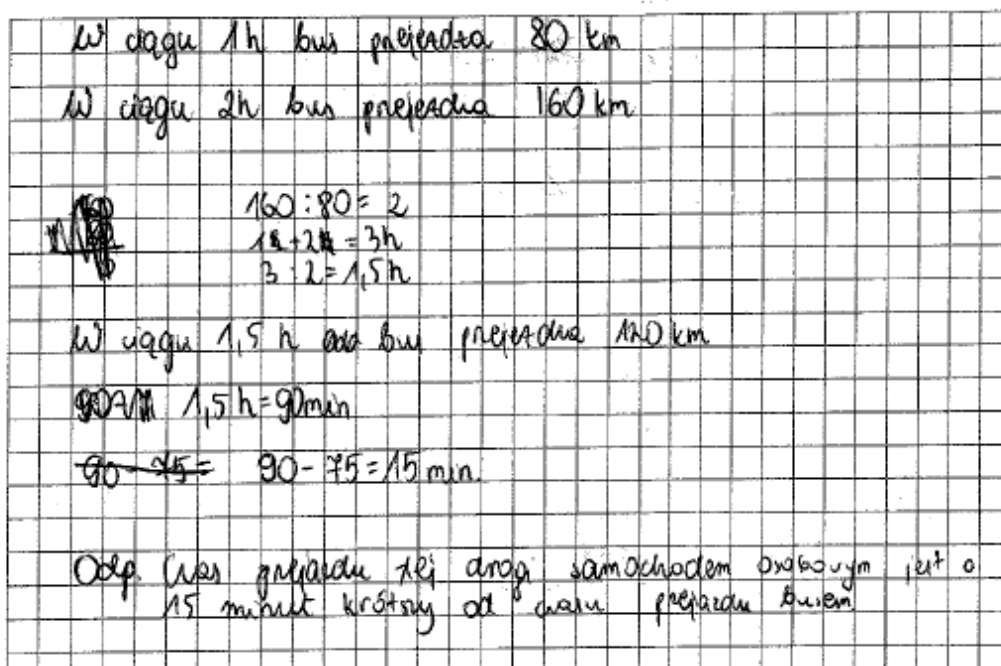 W ciągu 1h bus przejeżdża 80 km
W ciągu 2h bus przejeżdża 160 km
160:80= 2
1h+2h = 3h
3:2=1,5h
W ciągu 1,5 h bus przejeżdża 120 km
1,5 h=90min
90-75= 90-75=15 min.
Odp. Czas przejazdu tej drogi samochodem osobowym jest o
15 minut krótszy od czasu przejazdu busem.